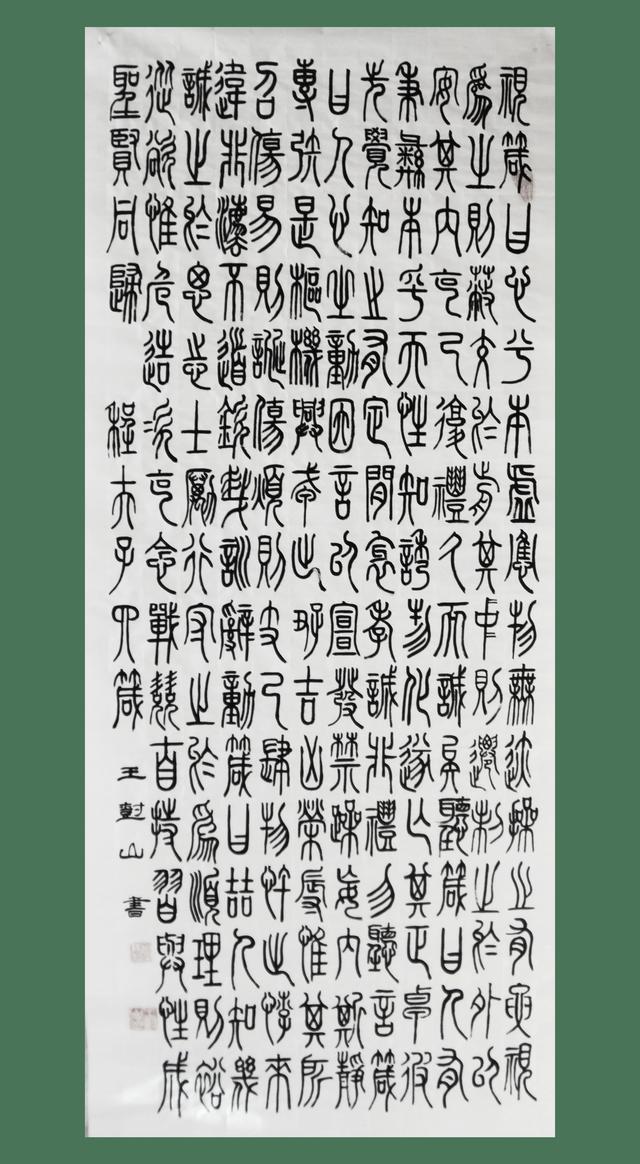 視箴曰心兮本虛應物無迹操之有要視
為之則蔽交於前其中則遷制之於外以
安其內克己復禮久而誠矣聽箴曰人有
秉彝本乎天性知誘物化遂亡其正卓彼
先覺知止有定閑邪存誠非禮勿聽言箴
曰人心之動因言以宣發禁躁妄內斯靜
專矧是樞機興戎出好吉凶榮辱惟其所
召傷易則誕傷煩則支己肆物忤出悖來
違非灋不道欽哉訓辭動箴曰喆人知幾
誠之於思志士勵行守之於為順理則裕
從欲惟危造次克念戰兢自持習與性成
聖賢同歸 程夫子四箴
王山書